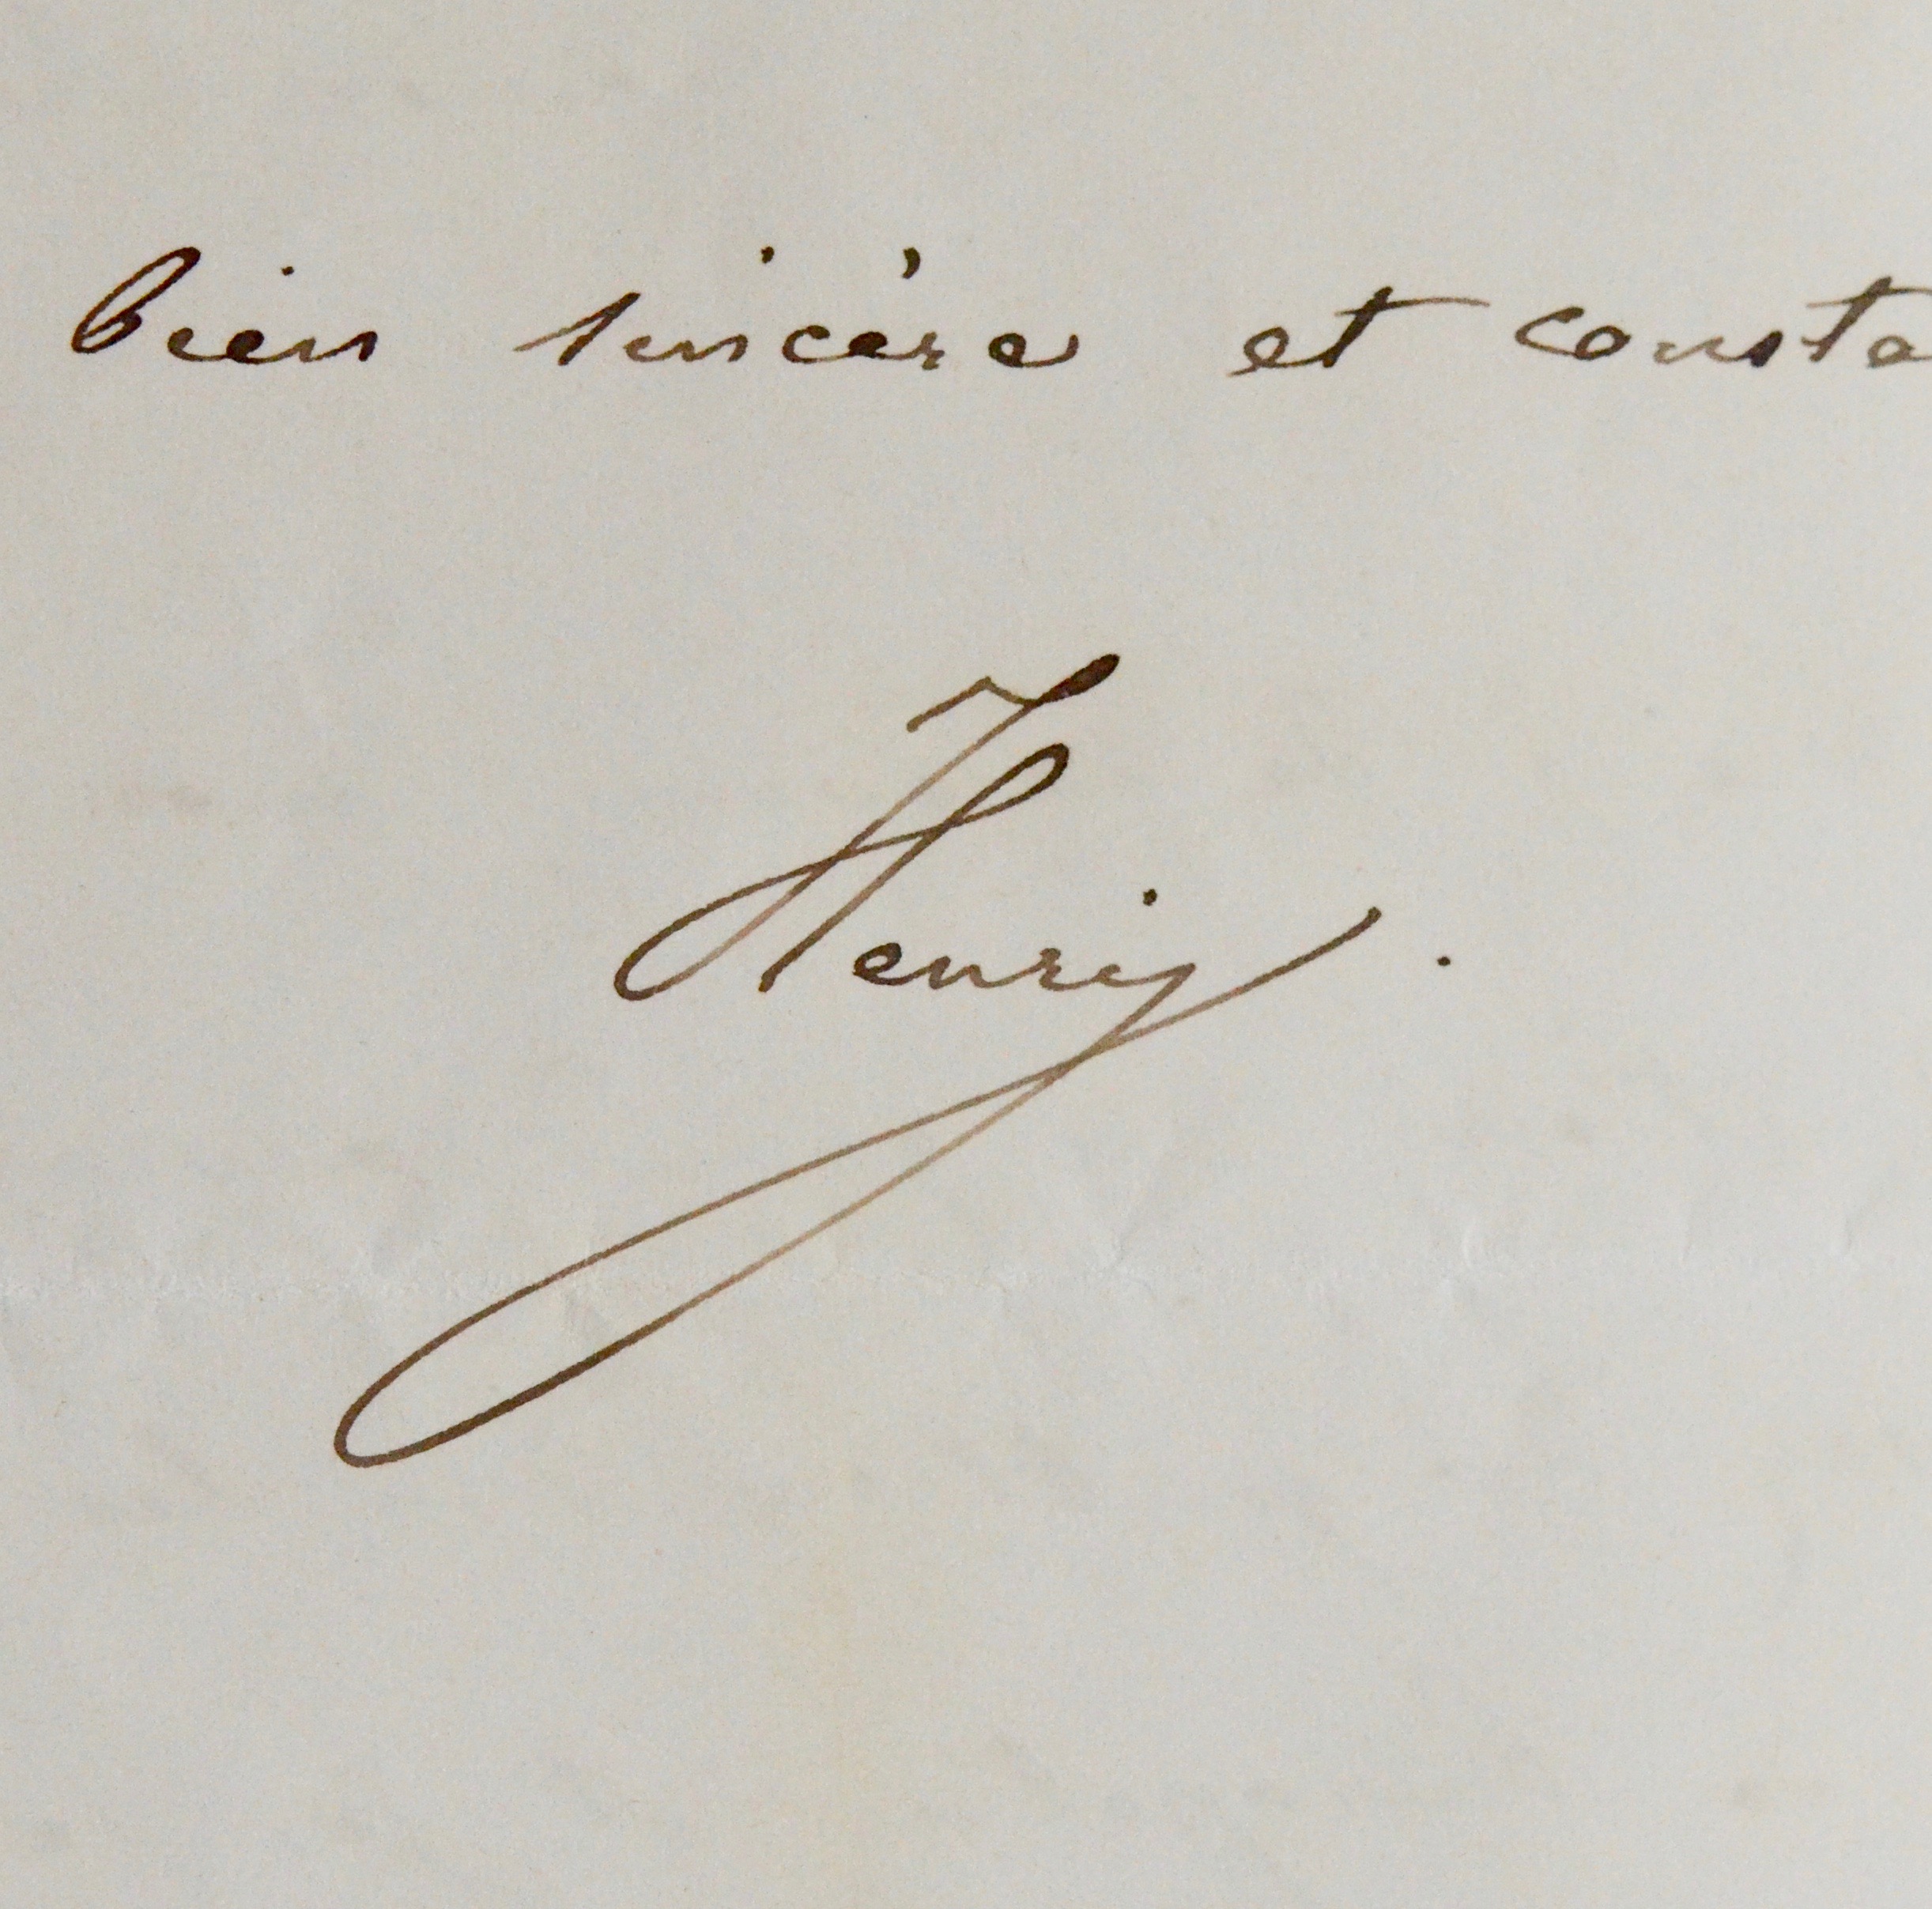 bien sincère et consta
Henri.